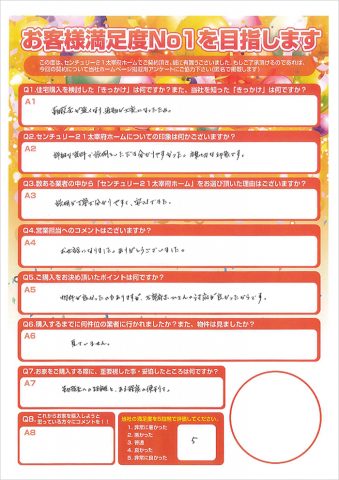 お客様満足度No1を目指します
この度は、センチュリー21太宰府ホームでご契約頂き、誠に有難うございました。もしご了承頂けるのであれば、
今回の契約について当社ホームページ掲載用アンケートにご協力下さい(匿名で掲載します)
Q1.住宅購入を検討した「きっかけ」は何ですか?また、当社を知った「きっかけ」は何ですか?
A1
Q2.センチュリー21太宰府ホームについての印象は何かございますか?
A2
Q3.数ある業者の中から「センチュリー21太宰府ホーム」をお選び頂いた理由はございますか?
A3
説明が丁寧で分かりやすく、安心できた。
Q4.営業担当へのコメントはございますか?
A4
お世話になりました。ありがとうございました。
Q5.ご購入をお決め頂いたポイントは何ですか?
A5
Q6.購入するまでに何件位の業者に行かれましたか?また、物件は見ましたか?
A6
見ていません。
Q7.お家をご購入する際に、重要視した事・妥協したところは何ですか?
A7
Q8.
これからお家を購入しようと
思っている方々にコメントを!!
A8
当社の満足度を5段階で評価してください。
1. 非常に悪かった
2. 悪かった
3. 普通
4. 良かった
5. 非常に良かった
5